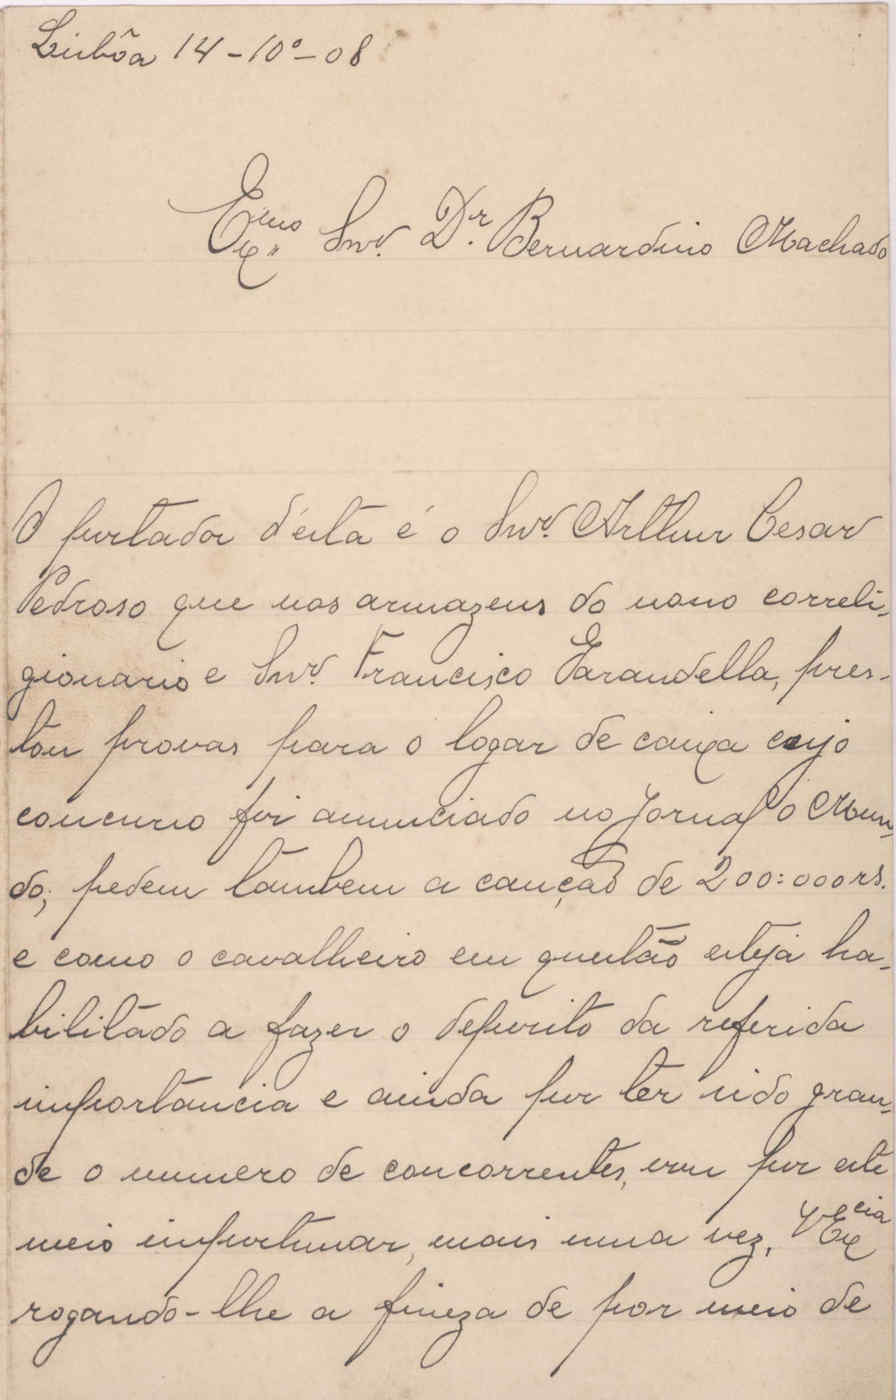 Lisbôa 14-10º-08
Exmo Snr. Dr. Bernardino Machado
O portador d'esta é o Snr. Arthur Cesar
Pedroso que nos armazens do nosso correli-
gionario e Snr. Francisco Grandella, pres-
tou provas para o logar de caixa cujo
concurso foi annunciado no Jornal o Mun-
do; pedem tambem a caução de 200:000 rs.
e como o cavalheiro em questão esteja ha-
bilitado a fazer o deposito da referida
importancia e ainda por ter sido gran-
de o numero de concorrentes, vou por este
meio importunar, mais uma vez, V Excia
rogando-lhe a fineza de por meio de